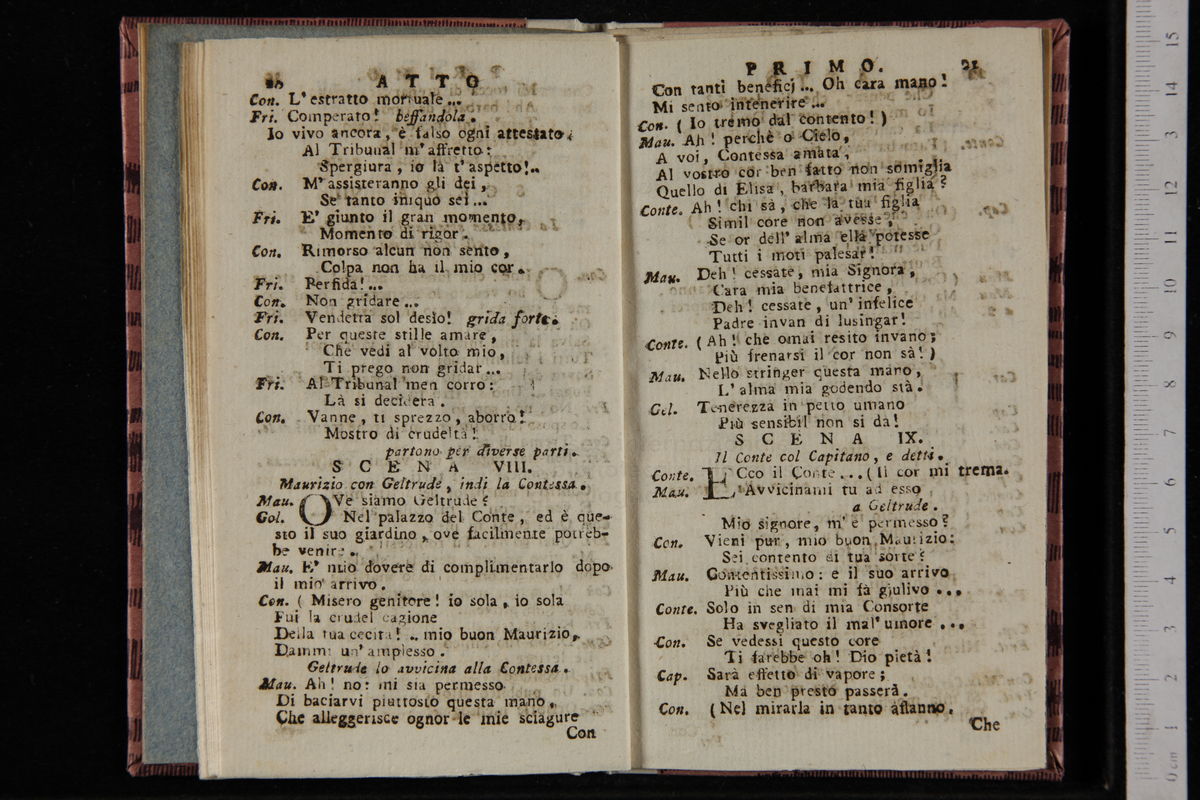 20 ATTO
Con. L'estratto mortuale...
Fri. Comperato! beffandola.
Io vivo ancora, è falso ogni attestato:
Al Tribunal m'affretto:
Spergiura, io là t'aspetto!..
Con. M'assisteranno gli dei,
Se tanto iniquo sei...
Fri. E' giunto il gran momento,
Momento di rigor.
Con. Rimorso alcun non sento,
Colpa non ha il mio cor.
Fri. Perfida!...
Con. Non gridare...
Fri. Vendetta sol desìo! grida forte.
Con. Per queste stille amare,
Che vedi al volto mio,
Ti prego non gridar...
Fri. Al Tribunal men corro:
Là si deciderà.
Con. Vanne, ti sprezzo, aborro!
Mostro di crudeltà!
partono per diverse parti.
SCENA VIII.
Maurizio con Geltrude, indi la Contessa.
Mau. OVe siamo Geltrude?
Gel. Nel palazzo del Conte, ed è que-
sto il suo giardino, ove facilmente potreb-
be venire.
Mau. E' mio dovere di complimentarlo dopo
il mio arrivo.
Con. (Misero genitore! io sola, io sola
Fui la crudel cagione
Della tua cecità! .. mio buon Maurizio,
Dammi un'amplesso.
Geltrude lo avvicina alla Contessa.
Mau. Ah! no: mi sia permesso
Di baciarvi piuttosto questa mano,
Che alleggerisce ognor le mie sciagure
Con
PRIMO. 21
Con tanti beneficj... Oh cara mano!
Mi sento intenerire...
Con. (Io tremo dal contento!)
Mau. Ah! perchè o Cielo,
A voi, Contessa amata,
Al vostro cor ben fatto non somiglia
Quello di Elisa, barbara mia figlia?
Conte. Ah! chi sà, che la tua figlia
Simil core non avesse,
Se or dell'alma ella potesse
Tutti i moti palesar!
Mau. Deh! cessate, mia Signora,
Cara mia benefattrice,
Deh! cessate, un'infelice
Padre invan di lusingar!
Conte. (Ah! che omai resito invano;
Più frenarsi il cor non sà!)
Mau. Nello stringer questa mano,
L'alma mia godendo stà.
Gel. Tenerezza in petto umano
Più sensibil non si da!
SCENA IX.
Il Conte col Capitano, e detti.
Conte. ECco il Conte...(Il cor mi trema.
Mau. Avvicinami tu ad esso
a Geltrude.
Mio signore, m'è permesso?
Con. Vieni pur, mio buon Maurizio:
Sei contento di tua sorte?
Mau. Contentissimo: e il suo arrivo
Più che mai mi fà giulivo...
Conte. Solo in sen di mia Consorte
Ha svegliato il mal'umore...
Con. Se vedessi questo core
Ti farebbe oh! Dio pietà!
Cap. Sarà effetto di vapore;
Ma ben presto passerà.
Con. (Nel mirarla in tanto affanno,
Che